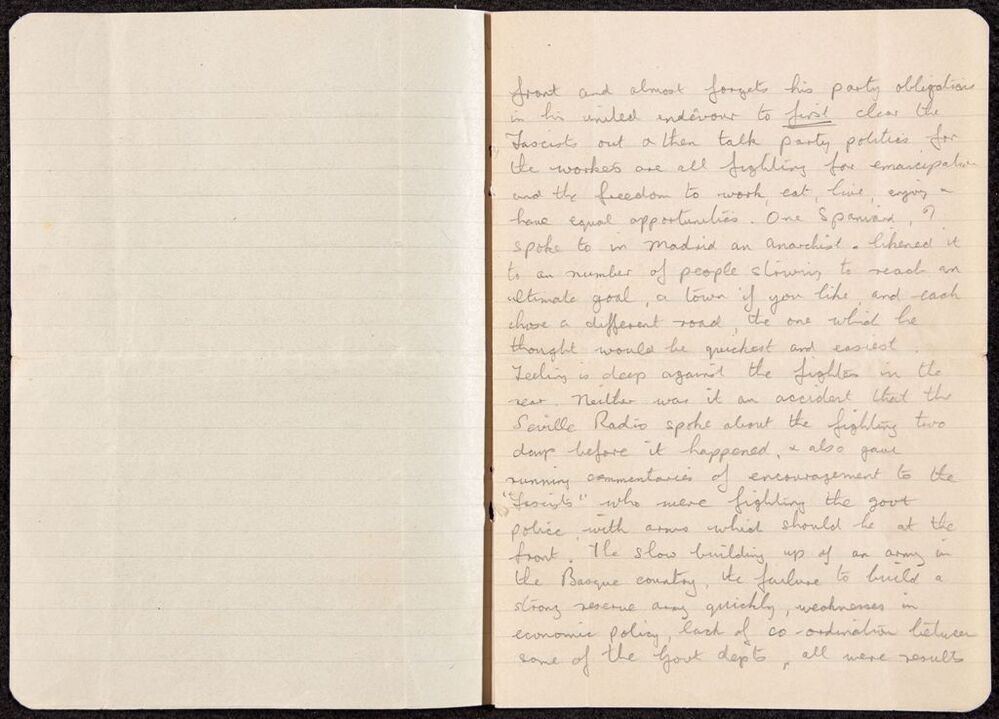 front and almost forgets his party obligations
in his united endêvour to first clear the
Fascists out & then talk party politics for
the workers are all fighting for emancipation
and the freedom to work, eat, live, enjoy &
have equal opportunities. One Spaniard, I
spoke to in Madrid an Anarchist. likened it
to an number of people striving to reach an
ultimate goal, a town if you like, and each
chose a different road, the one which he
thought would be quickest and easiest.
Feeling is deep against the fighters in the
rear. Neither was it an accident that the
Seville Radio spoke about the fighting two
days before it happened, & also gave
running commentaries of encouragement to the
"Fascists" who were fighting the govt
police, with arms which should be at the
front. The slow building up of an army in
the Basque country, the failure to build a
strong reserve army quickly, weaknesses in
economic policy, lack of co-ordination between
some of the Govt depts, all were results